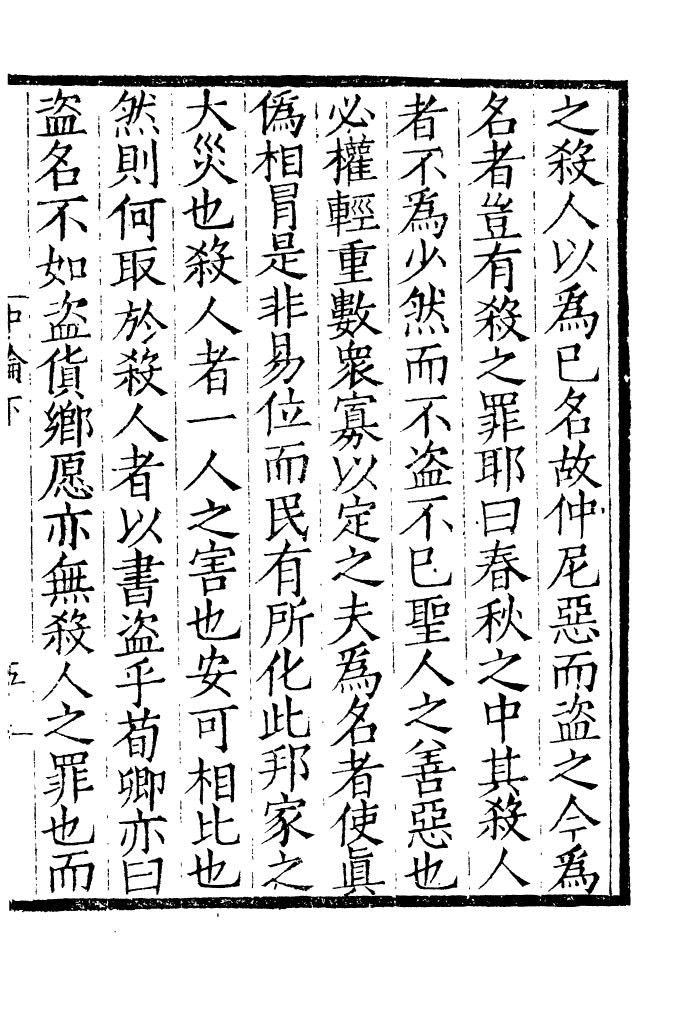 之殺人以爲已名故仲尼惡而盜之今爲
名者豈有殺之罪耶曰春秋之中其殺人
者不爲少然而不盜不已聖人之善惡也
必權輕重數衆寡以定之夫爲名者使眞
僞相冒是非易位而民有所化此邦家之
大災也殺人者一人之害也安可相比也
然則何取於殺人者以書盜乎荀卿亦曰
盜名不如盜貨鄉愿亦無殺人之罪也而
中論下